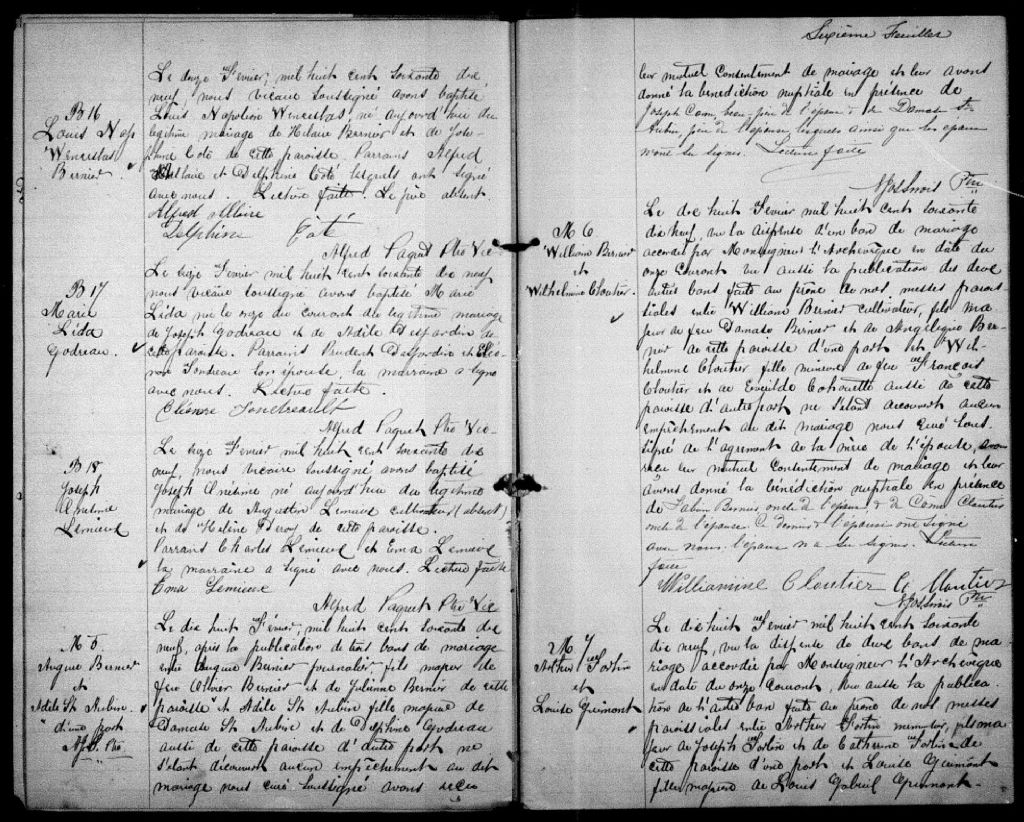 B 16
Louis Nap
Wencestas
Bernier.
Le onze Février, mil huit cent soixante dix
neuf, nous vicaire soussigné avons baptisé
Louis Napoléon Wencestas, né aujourd'hui du
légitime mariage de Hilaire Bernier et de Jose-
phine Coté de cette paroisse. Parrains Alfred
et Delphine Coté lesquels ont signé
avec nous. Lecture faite. Le père absent.
Alfred Allaire
Delphine Coté
Alfred Paquet Ptre Vic
B 17
Marie
Lida
Godreau.
Le seize Février mil huit cent soixante dix neuf
nous vicaire soussigné avons baptisé Marie
Lida née le onze du courant du légitime mariage
de Joseph Godreau et de Adile Desjardin de
cette paroisse. Parrains Prudent Desjardin et Eléo-
nore son épouse, la marraine a signé
avec nous. Lecture faite.
Eléonore
Alfred Paquet Ptre Vic-
B 18
Joseph
Onésime
Lemieux
Le seize Février mil huit cent soixante dix
neuf, nous vicaire soussigné avons baptisé
Joseph Onésime né aujourd'hui du légitime
mariage de Augustin Lemieux cultivateur (absent)
et de Helène Deroy de cette paroisse.
Parrains Charles Lemieux et Ema Lemieux
la marraine a signé avec nous. Lecture faite
Ema Lemieux
Alfred Paquet Ptre Vic
M. 5
Auguste Bernier
et
Adèle St. Aubin.
d'une part
Ptre
Le dix huit Février, mil huit cent soixante dix
neuf, après la publication de trois bans de mariage
entre Bernier journalier fils majeur de
feu Olivier Bernier et de Julienne Bernier de cette
paroisse et Adile St. Aubin fille majeure de
Damase St. Aubin et de Delphine Godreau
aussi de cette paroisse d'autre part ne
s'étant découvert aucun empêchement au dit
mariage nous curé soussigné avons recu
Sixième Feuillet
leur mutuel consentement de mariage et leur avons
donné la bénédiction nuptiale en présence de
Joseph Caron, beau-père de l'époux & de Damase St.
Aubin, père de l'épouse lesquels ainsi que les époux
n'ont su signer. Lecture faite
Ptre
M. 6
William Bernier
et
Wilhelmine Cloutier.
Le dix huit Février mil huit cent soixante
dix neuf, vu la dispense d'un ban de mariage
accordé par Monseigneur l'Archevêque en date du
onze Courant vu aussi la publication des deux
autres bans faite au prône de nos messes parois-
siales entre William Bernier cultivateur, fils ma-
jeur de feu Damase Bernier et de Angélique Ber-
nier de cette paroisse d'une part et Wil-
helmine Cloutier fille mineure de feu François
Cloutier et de Ereulde Chouette aussi de cette
paroisse d'autre part ne s'étant découvert aucun
empêchement au dit mariage nous Curé sous-
signé de l'agrément de la mère de l'épouse, avons
recu leur mutuel consentement de mariage et leur
avons donné la bénédiction nuptiale en présence
de Bernier oncle de l'époux & de Come Cloutier
oncle de l'épouse. Ce dernier & l'épouse ont signé
avec nous. l'époux n'a su signer. Lecture
faite
Williamine Cloutier C. Cloutier
Ptre
M. 7
Arthur Fortin
et
Louise Guimont.
Le dix huit Février mil huit cent soixante
dix neuf, vu la dispense de deux bans de ma-
riage accordée par Monseigneur l'Archevêque
en date du onze Courant, vu aussi la publica-
tion de l'autre ban faite au prône de nos messes
paroissiales entre Arthur Fortin menuisier, fils ma-
jeur de Joseph Fortin et de Catherine Fortin de
cette paroisse d'une part et Louise Guimont
fille majeure de Louis Gabriel Guimont.